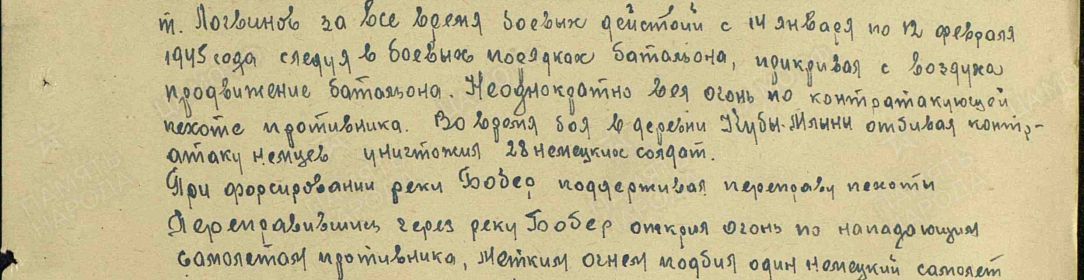 т. Логвинов за все время боевых действий с 14 января по 12 февраля
1945 года следуя в боевых порядках батальона, прикривая с воздуха
продвижение батальона. Неоднократно вел огонь по контратакующей
пехоте противника. Во время боя в деревни Кубы-Млыни отбивая контр-
атаку немцев уничтожил 28 немецких солдат.
При форсировании реки Бобер поддерживал переправу пехоты
Переправившись через реку Бобер открыл огонь по нападающим
самолетам противника, метким огнем подбил один немецкий самолет